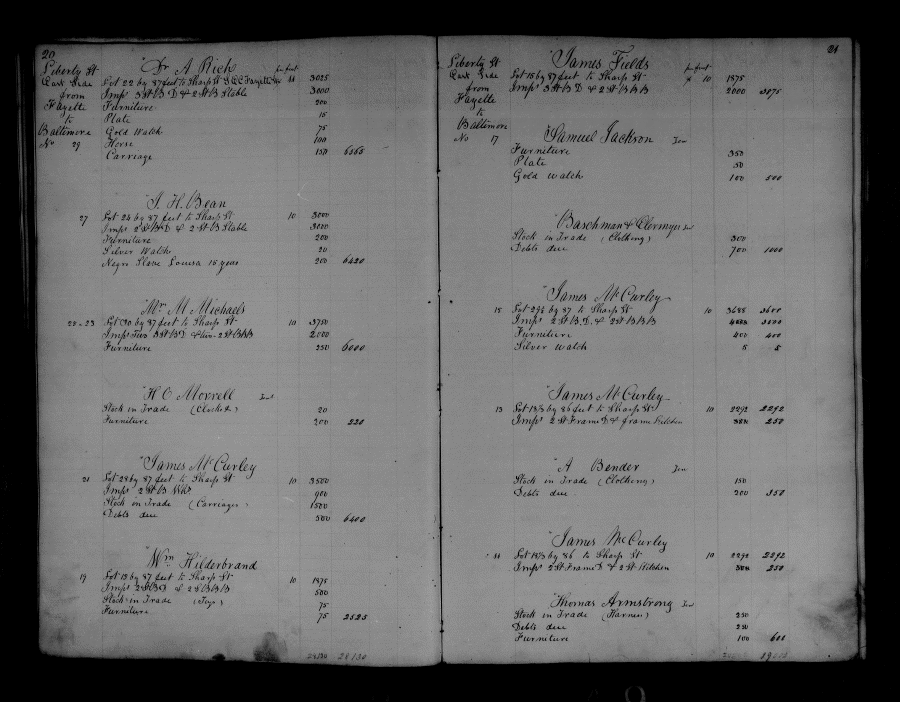 20
Liberty St
East Side
from
Fayette
to
Baltimore
No 29
Dr A Rich
Lot 22 by 87 feet to Sharp St Fayette 3025
Imps 3 St B D & 2 St B Stable 3000
Furniture 200
Plate 15
Gold Watch 75
Horse 100
Carriage 150 6565
J. H. Bean
27 Lot 24 by 87 feet to Sharp St 10 3000
Imps 2 St B D & 2 St B Stable 3000
Furniture 200
Silver Watch 20
Negro Slave Louisa 16 years 200 6420
Mr M Michaels
25-23 Lot 30 by 87 feet to Sharp St 10 3750
Imps Two 3 St B D & two 2 St B B B 2000
Furniture 250 6000
H C Morrell Tent
Stock in Trade (Clocks &) 20
Furniture 200 220
James McCurley
21 Lot 28 by 87 feet to Sharp St 10 3500
Imps 2 St B 900
Stock in Trade (Carriages) 1500
Debts due 500 6400
Wm Hilderbrand
19 Lot 15 by 87 feet to Sharp St 10 1875
Imps 2 St B D & 2 St B B B 500
Stock in Trade (Toys) 75
Furniture 75 2525
28130 28130
21
Liberty St
East Side
from
Fayette
to
Baltimore
No 17
James Fields
Lot 15 by 87 feet to Sharp St 10 1875
Imps 3 St B D & 2 St B B B 2000 3875
Samuel Jackson Ten
Furniture 350
Plate 50
Gold Watch 100 500
Baschman & Clermyer Ten
Stock in Trade (Clothing) 300
Debts due 700 1000
James McCurley
15 Lot 29½ by 87 to Sharp St 10 3688
Imps 2 St B D & 2 St B B B
Furniture 400 400
Silver Watch 5 5
James McCurley
13 Lot by 86 feet to Sharp St 10 2292 2292
Imps 2 St Frame D & frame Kitchen 250
A Bender Ten
Stock in Trade (Clothing) 150
Debts due 200 350
James McCurley
11 Lot by 86 to Sharp St 10 2292 2292
Imps 2 St Frame D & 2 St Kitchen 250
Thomas Armstrong Ten
Stock in Trade (Harness) 250
Debts due 250
Furniture 100 600